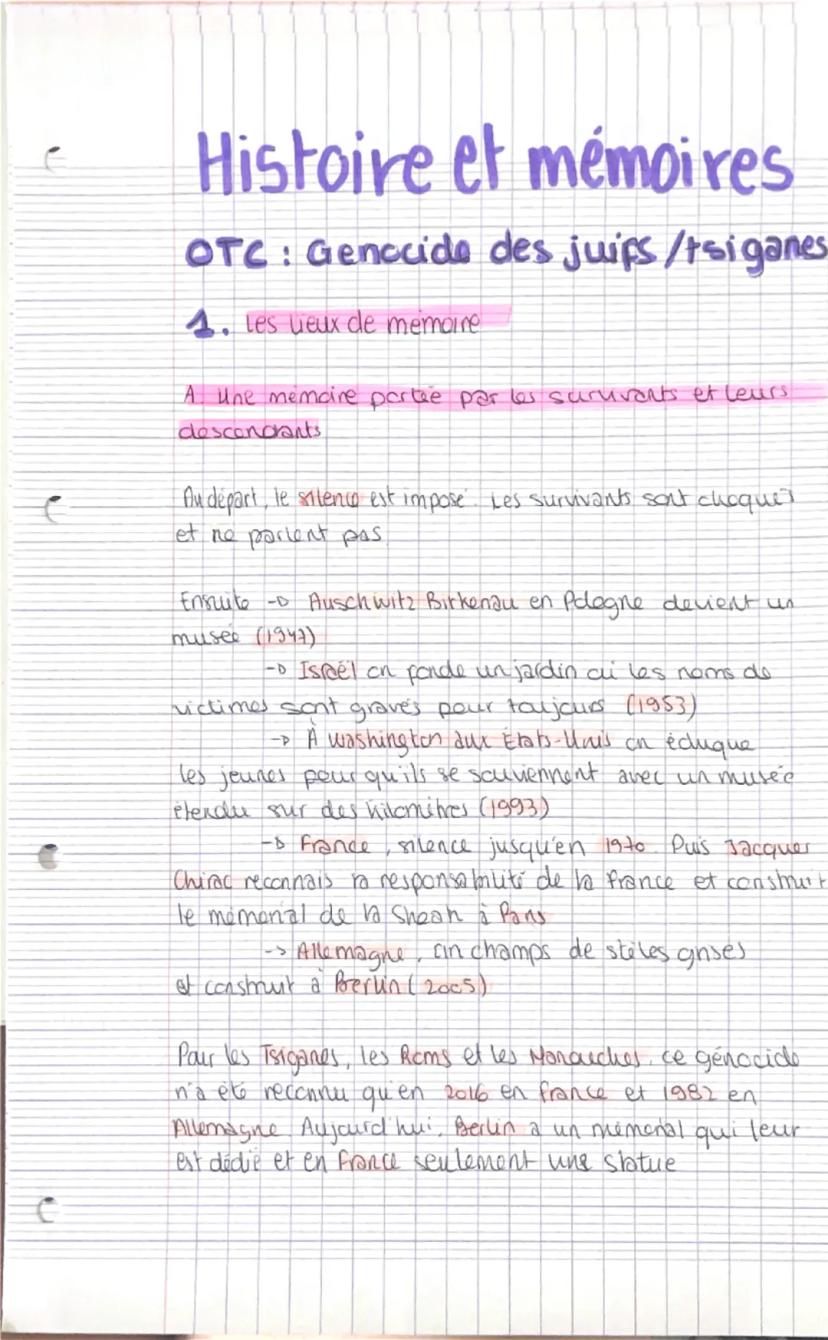 Histoire et mémoires
OTC : Genocide des juifs /tsiganes
1. Les lieux de mémoire
A. Une mémoire portée par les survivants et leurs
descendants
Au départ, le silence est imposé. Les survivants sont choqués
et ne parlent pas
Ensuite → Auschwitz Birkenau en Pologne devient un
musée (1947)
→ Israël on fonde un jardin où les noms de
victimes sont gravés pour toujours (1953)
→ À Washington aux États-Unis on éduque
les jeunes pour qu'ils se souviennent avec un musée
étendu sur des kilomètres (1993)
→ France, silence jusqu'en 1970. Puis Jacques
Chirac reconnais la responsabilité de la France et construit
le mémorial de la Shoah à Paris
→ Allemagne, un champs de stèles grises
est construit à Berlin (2005)
Pour les Tsiganes, les Roms et les Manouches, ce génocide
n'a été reconnu qu'en 2016 en France et 1982 en
Allemagne. Aujourd'hui, Berlin a un mémorial qui leur
est dédié et en France seulement une statue